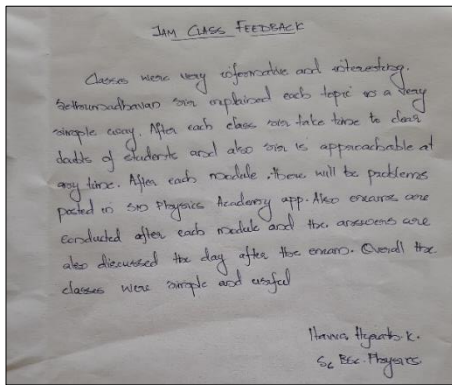 JAM CLASS FEEDBACK
Classes were very informative and interesting.
Sethumadhavan sir explained each topic in a very
simple way. After each class sir take time to clear
doubts of students and also sir is approachable at
any time. After each module there will be problems
posted in Physics Academy app. Also exams are
conducted after each module and the answers are
also discussed the day after the exam. Overall the
classes were simple and useful
K.
BSc. Physics